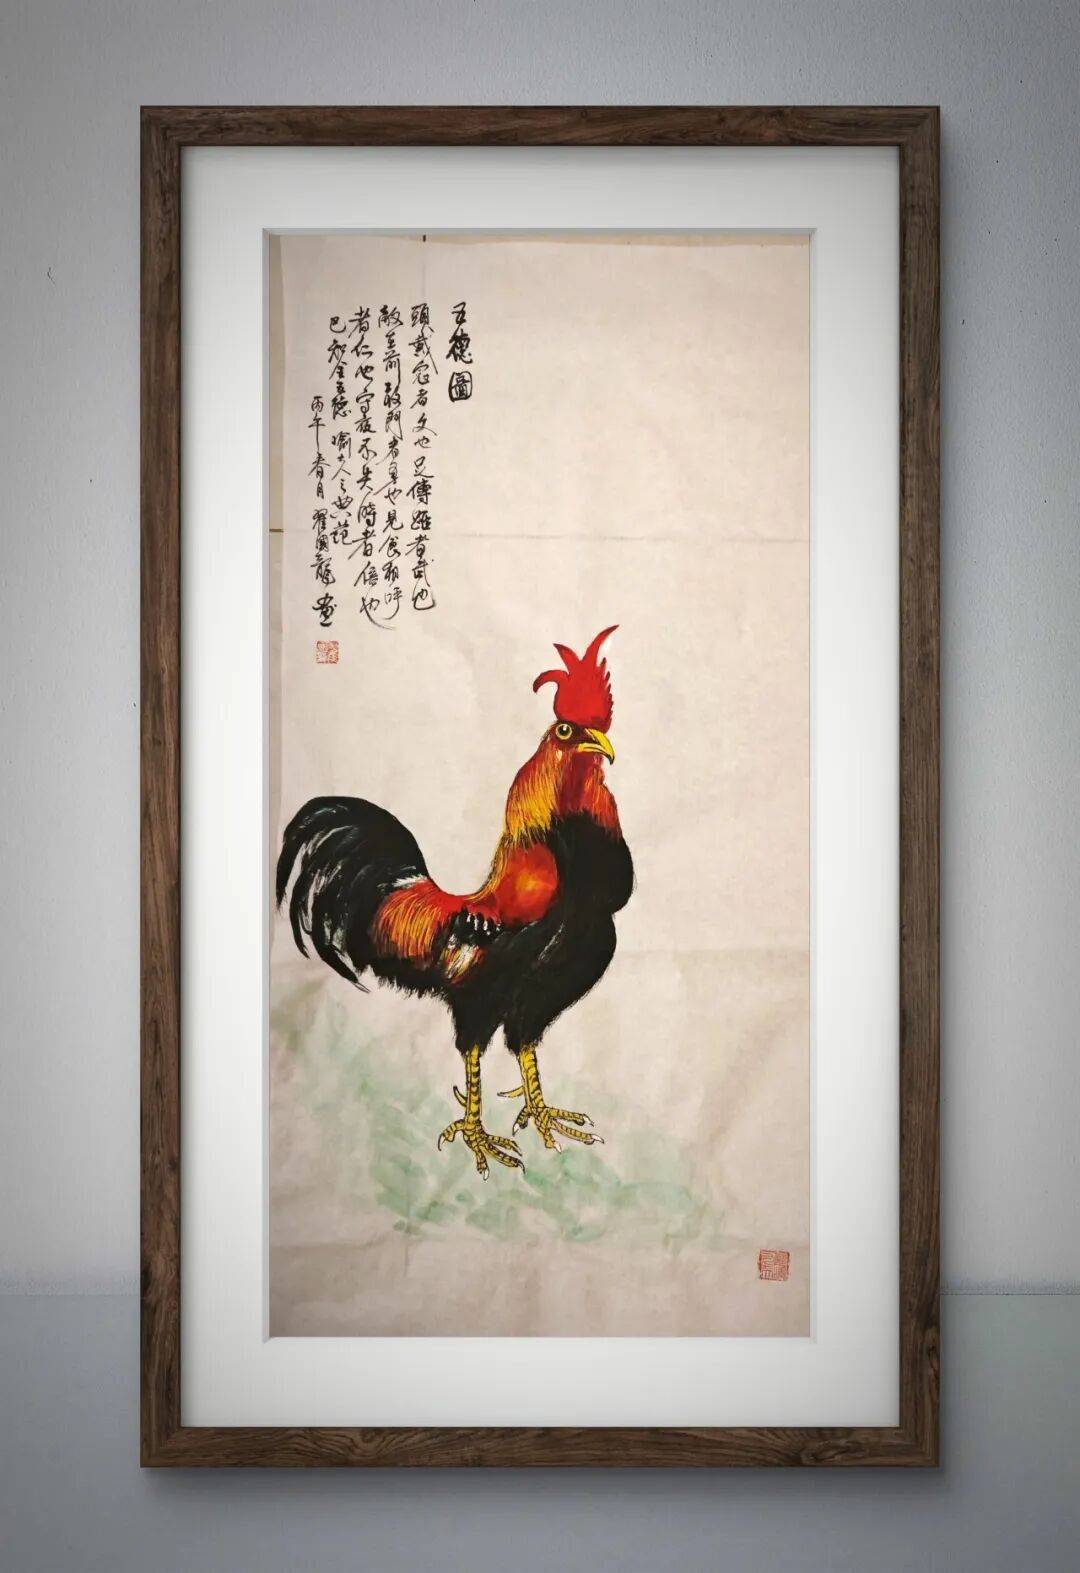 五德圖
頭戴冠者文也足傅距者武也
敵在前敢鬥者勇也見食相呼
者仁也守夜不失時者信也
巴知全五德 喻人之典範
丙午春月 翟國龍 畫